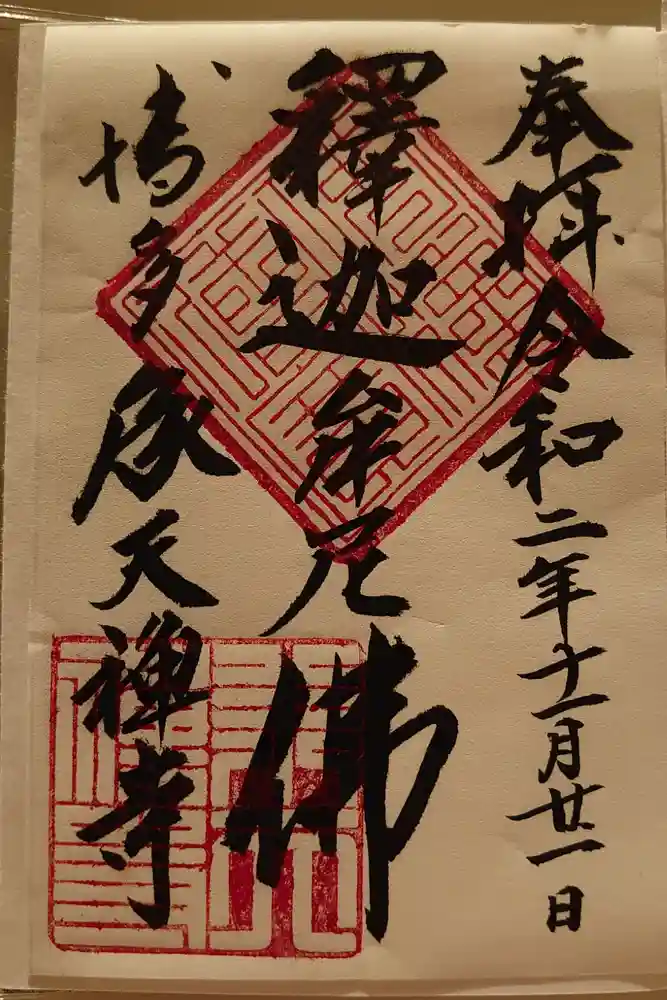 奉拝令和二年十一月廿一日
釋迦牟尼佛
博多承天禅寺